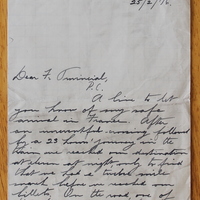 25/2/16.
Dear Fr Provincial,
P.C.
A line to let
you know of my safe
arrival in France. After
an uneventful crossing followed
by a 23 hours' journey in the
train we reached our destination
at eleven at night only to find
that we had a twelve mile
march before we reached our
billets. On the road one of